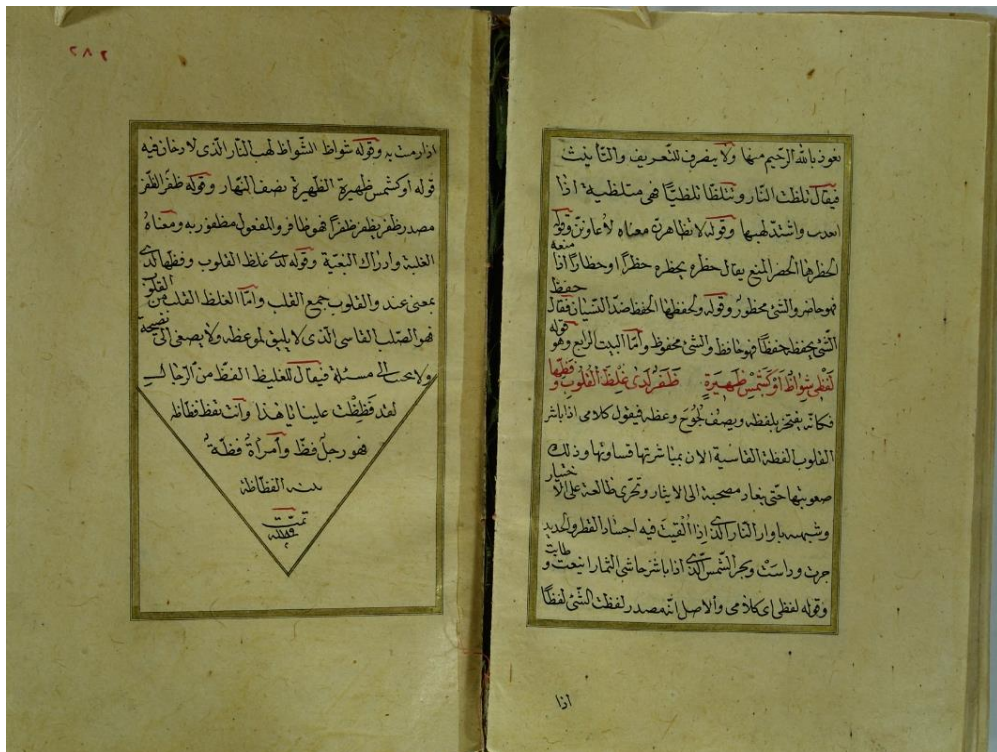 نعوذ بالله الرّحيم منها ولا ينصرف للتّعريف والتّأنيث
فيقال تلظّت النّار وتتلظّا تلظّيًّا فهى متلظّية اذا
واشتدّ لهبها وقوله لا تظاهرنّ معناه لأعاوننّ وقوله
الحظرها الحضر المنع يقال حظره يحظره حظرًا وحظارًا اذا منعه
فهو حاضر والشئ محظورٌ وقوله ولحفظها الحفظ ضدّ النّسيان فيقال حفظ
الشّئ يحفظه حفظًا فهو حافظ والشئ محفوظ وأمّا البيت الرّابع وهو قوله
لَفْظِى شِوَاظٌ اَوْ كَشَمْسِ ظَهِيرَةٍ ظَفَرٌ لَدَى غِلَظِ القُلُوبِ وَفَظِّهَا
فكانّه يفتخر بلفظه ويصف وعظه فيقول كلامى اذا باشر
القلوب الفظّة القاسية الان بمباشرتها قساوتها وذلك
صعوبتها حتّى الى الايثار على الاختيار
وشبهه باوار النّار الّذى اِذَا اُلْقيَتْ فيه اجساد القطر والحديد
جرت وبحر الشّمس الّذى اذا باشر حاشى الثّمار اينعت وطابت
وقوله لفظى اى كلامى والاصل انّه مصدر لفظت الشّئ لفظًا
اذا
٢٨٢
اذا رميت به وقوله شواظ الشّواظ لهب النّار الّذى لا دخان فيه
قوله او كشمس ظهيرة الظّهيرة نصف النّهار وقوله ظفر الظّفر
مصدر ظفر يظفر ظفرًا فهو ظافر والمفعول مظفور به ومعناهُ
الغلبة وادراك البغية وقوله لدى غلظ القلوب وفظّها لدى
بمعنى عند والقلوب جمع القلب وأمّا الغلظ القلب من القلوب
فهو الصّلب القاسى الّذى لا يليق لموعظة ولا يصغى الى نصيحة
ولا الى مسئلة فيقال للغليظ الفظّ من الرّجال
لقد فَظِظْتَ علينا يا هٰذا وأنت تفظّ فظاظة
فهو رجلٌ فظّ وأمرأة فظّةٌ
الفظاظة
تمّت